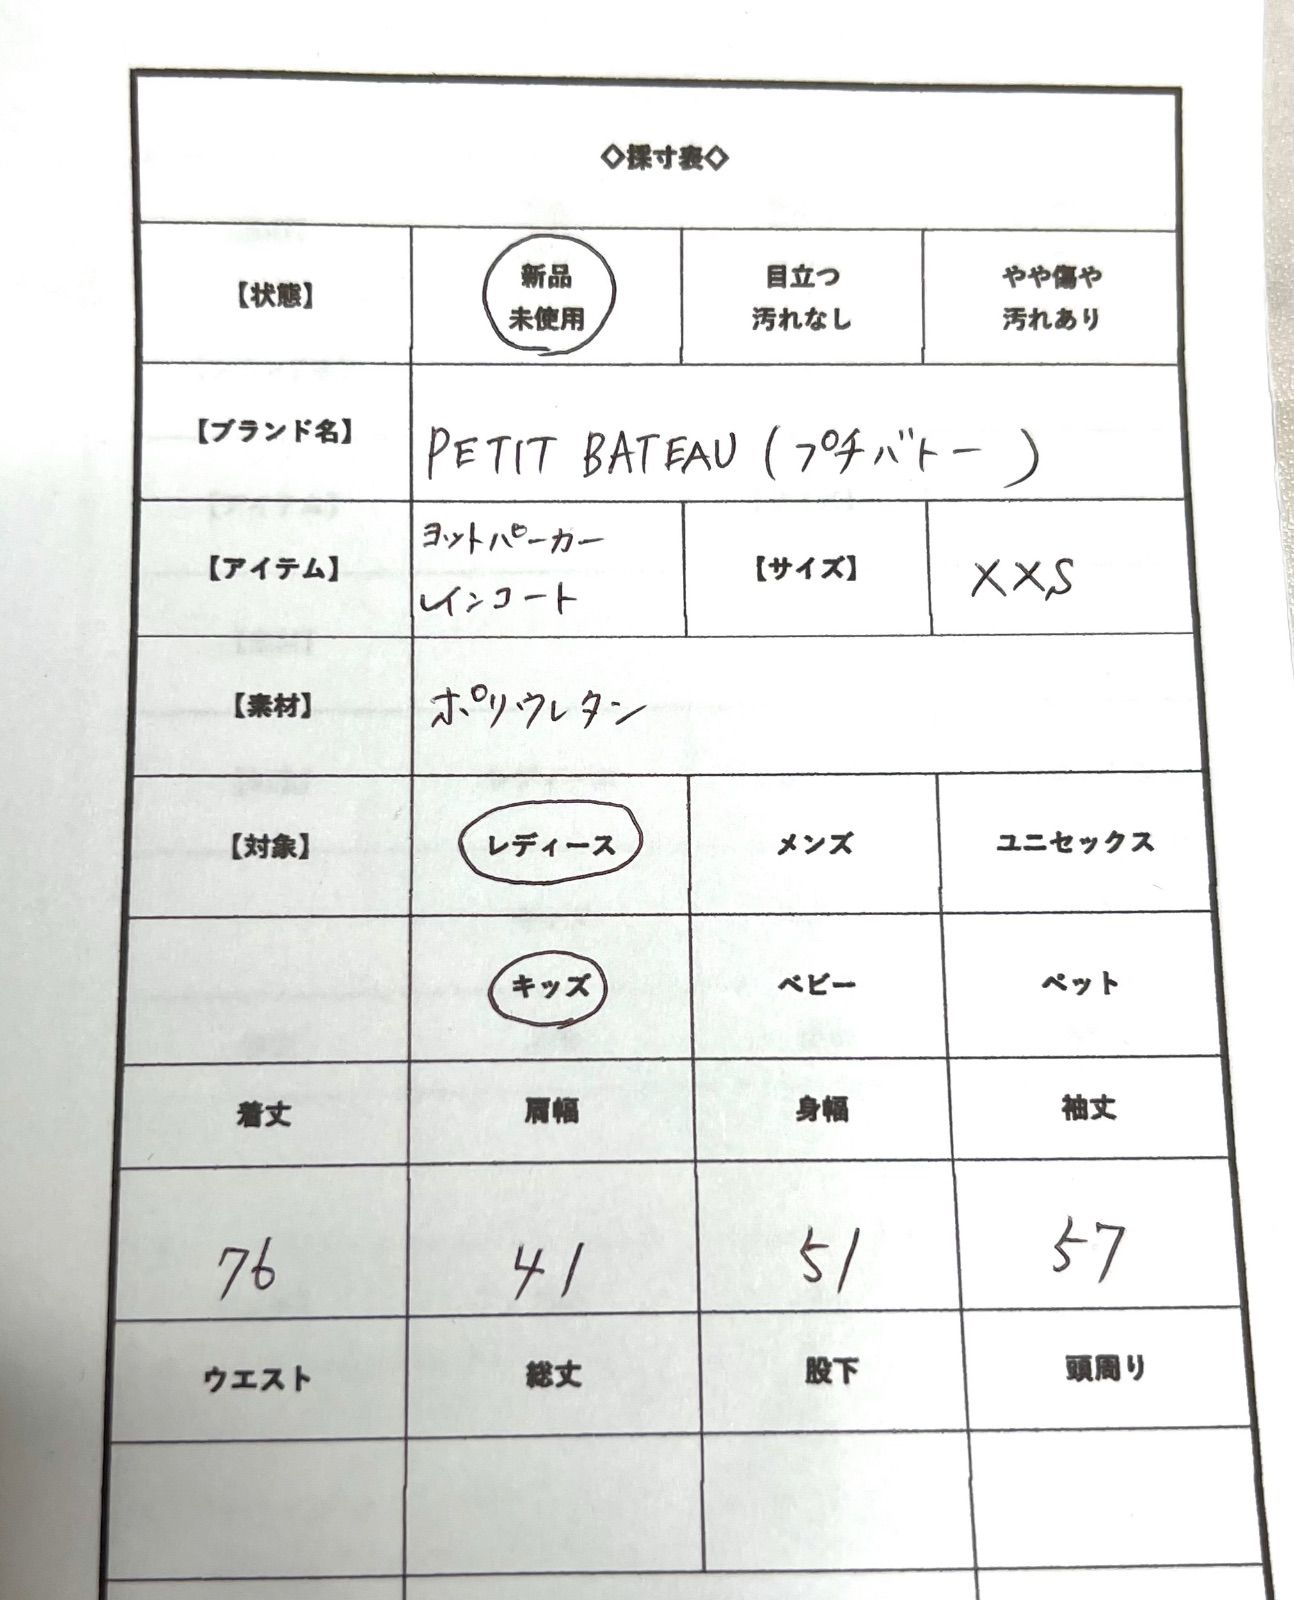 ◇採寸表◇
【状態】
新品
未使用
目立つ
汚れなし
やや傷や
汚れあり
【ブランド名】
PETIT BATEAU (プチバトー )
【アイテム】
ヨットパーカー
レインコート
【サイズ】
XXS
【素材】
ポリウレタン
【対象】
レディース
メンズ
ユニセックス
キッズ
ベビー
ペット
着丈
肩幅
身幅
袖丈
76
41
51
57
ウエスト
総丈
股下
頭周り